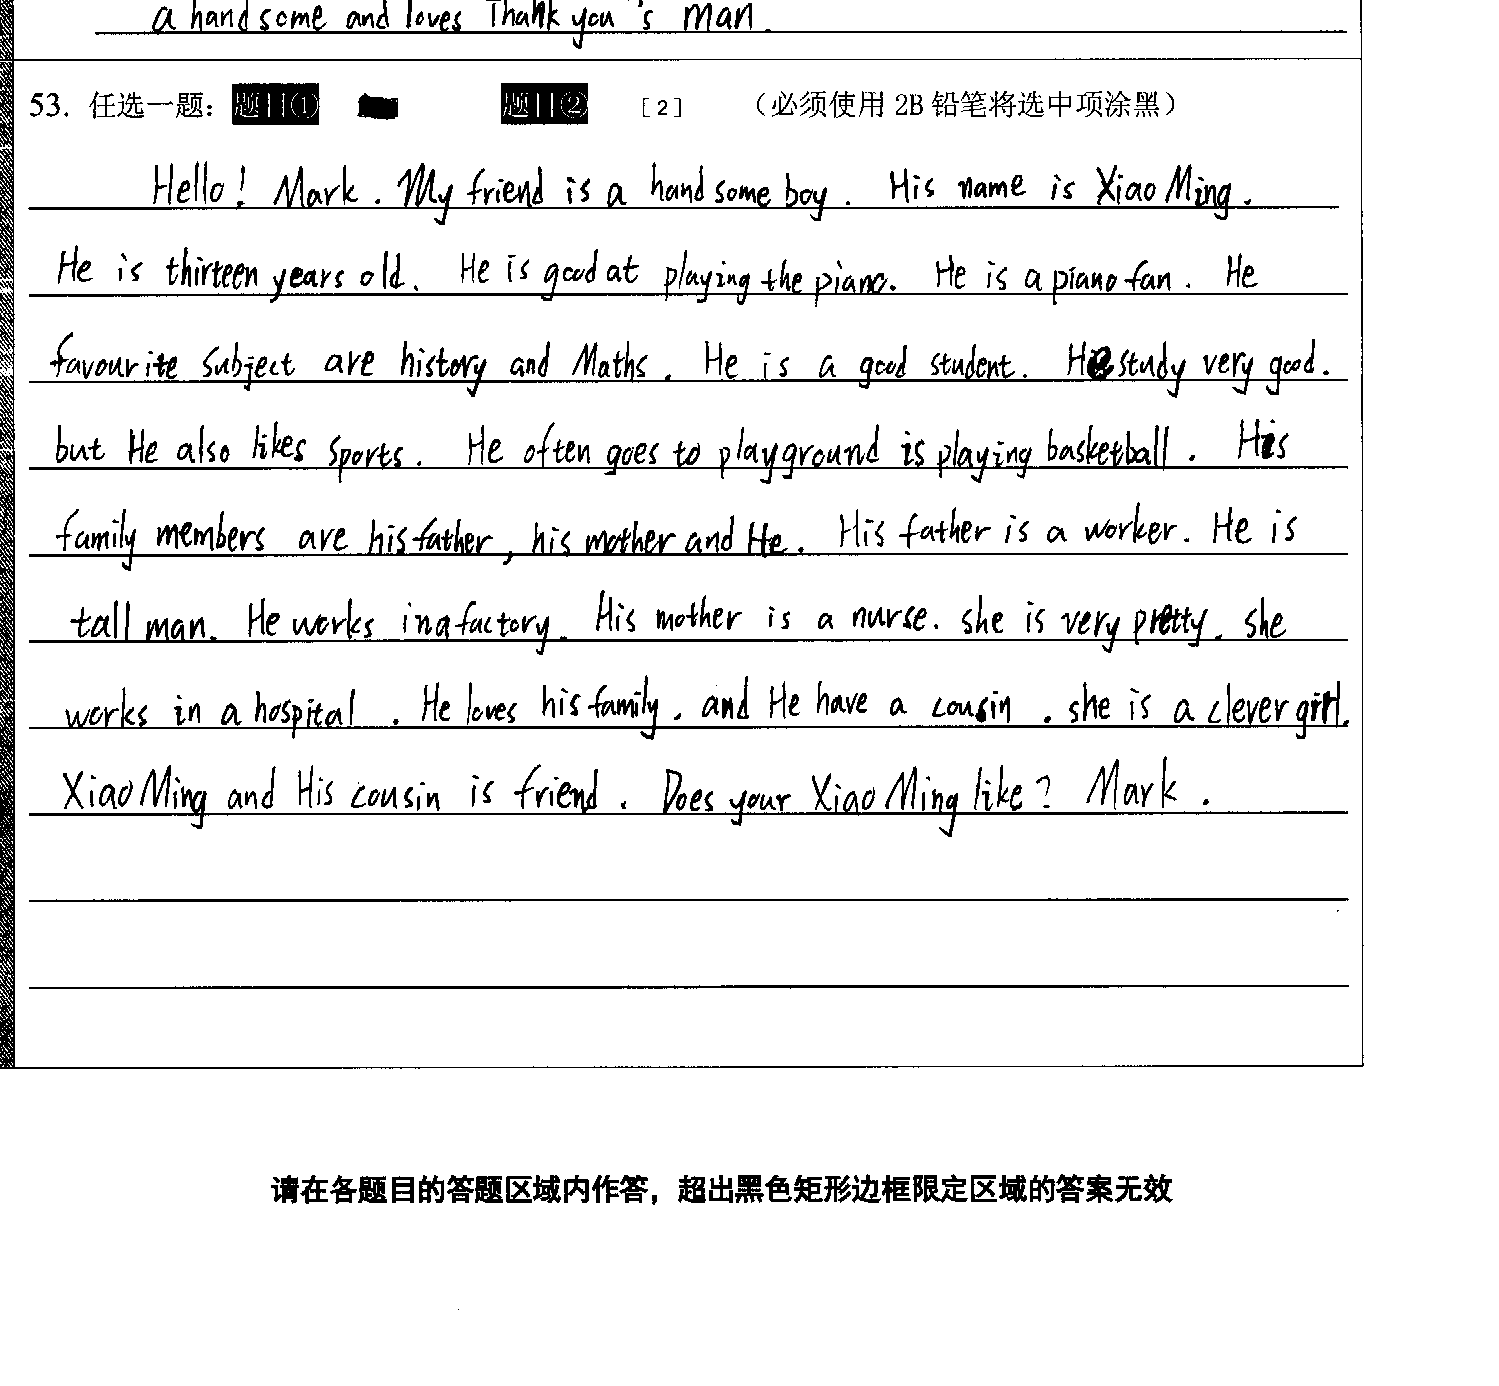 a handsome and loves Thank you's man.
53. 任选一题: 题目① 题目② [2] （必须使用 2B 铅笔将选中项涂黑）
Hello! Mark. My friend is a handsome boy. His name is Xiao Ming.
He is thirteen years old. He is good at playing the piano. He is a piano fan. He
favourite subject are history and Maths. He is a good student. He study very good.
but He also likes sports. He often goes to playground is playing basketball. His
family members are his father, his mother and He. His father is a worker. He is
tall man. He works in a factory. His mother is a nurse. she is very pretty. she
works in a hospital. He loves his family. and He have a cousin. she is a clever girl.
Xiao Ming and His cousin is friend. Does your Xiao Ming like? Mark.
请在各题目的答题区域内作答，超出黑色矩形边框限定区域的答案无效